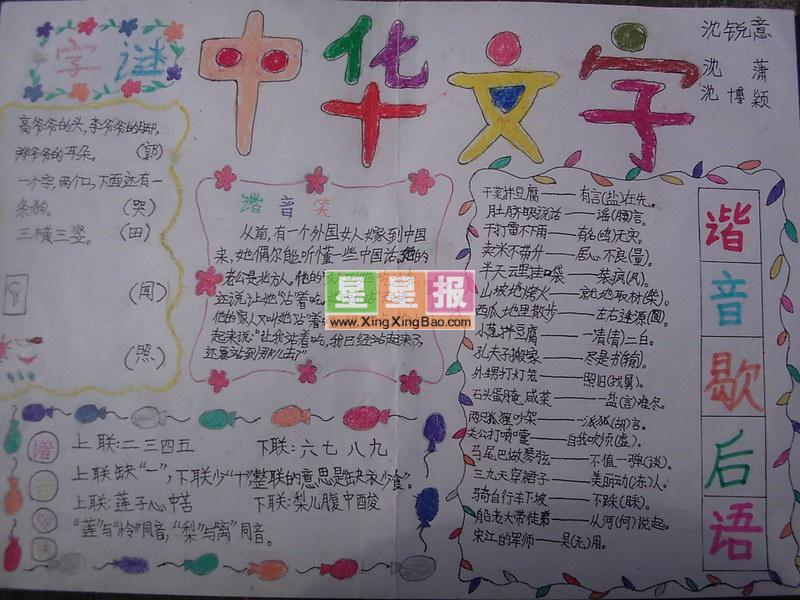 中华文字
沈锐意
沈 萧
沈博颖
字谜
高爷爷的头,李爷爷的脚,
郑爷爷的耳朵。 (郭)
一个字,两个口,下面还有一
条狗。 (哭)
三横三竖。 (田)
(闻)
(照)
谐音笑
从前,有一个外国女人嫁到中国
来,她偶尔能听懂一些中国话,她的
老公是北方人。他的
还说:让她站着吃。
他的家人又叫她站着
起来说:“让我站着吃,我已经站起来了
还要站到那儿去?”
星星报
www.XingXingBao.com
谐音歇后语
干菜拌豆腐——有言(盐)在先。
肚脐眼说话——谣(腰)言。
干打雷不雨——有名(鸣)无实。
卖米不带升——居心不良(量)。
半天云里挂口袋——装疯(风)。
山坡地烧火——就地取材(柴)。
西瓜地里散步——左右逢源(圆)。
小葱拌豆腐——一清(青)二白。
孔夫子搬家——尽是书(输)。
外甥打灯笼——照旧(找舅)。
石头蛋腌咸菜——一盐(言)难尽。
两只狐狸吵架——一派狐(胡)言。
关公打喷嚏——自我吹须(虚)。
马尾巴做琴弦——不值一弹(谈)。
三九天穿裙子——美丽动(冻)人。
骑自行车下坡——不踩(睬)。
船老大带徒弟——从河(何)说起。
宋江的军师——吴(无)用。
谐音
上联:二三四五 下联:六七八九
上联缺“一”,下联少“十”整联的意思是缺衣少食”。
上联:莲子心中苦 下联:梨儿腹中酸
“莲”与“怜”同音,“梨”与“离”同音。